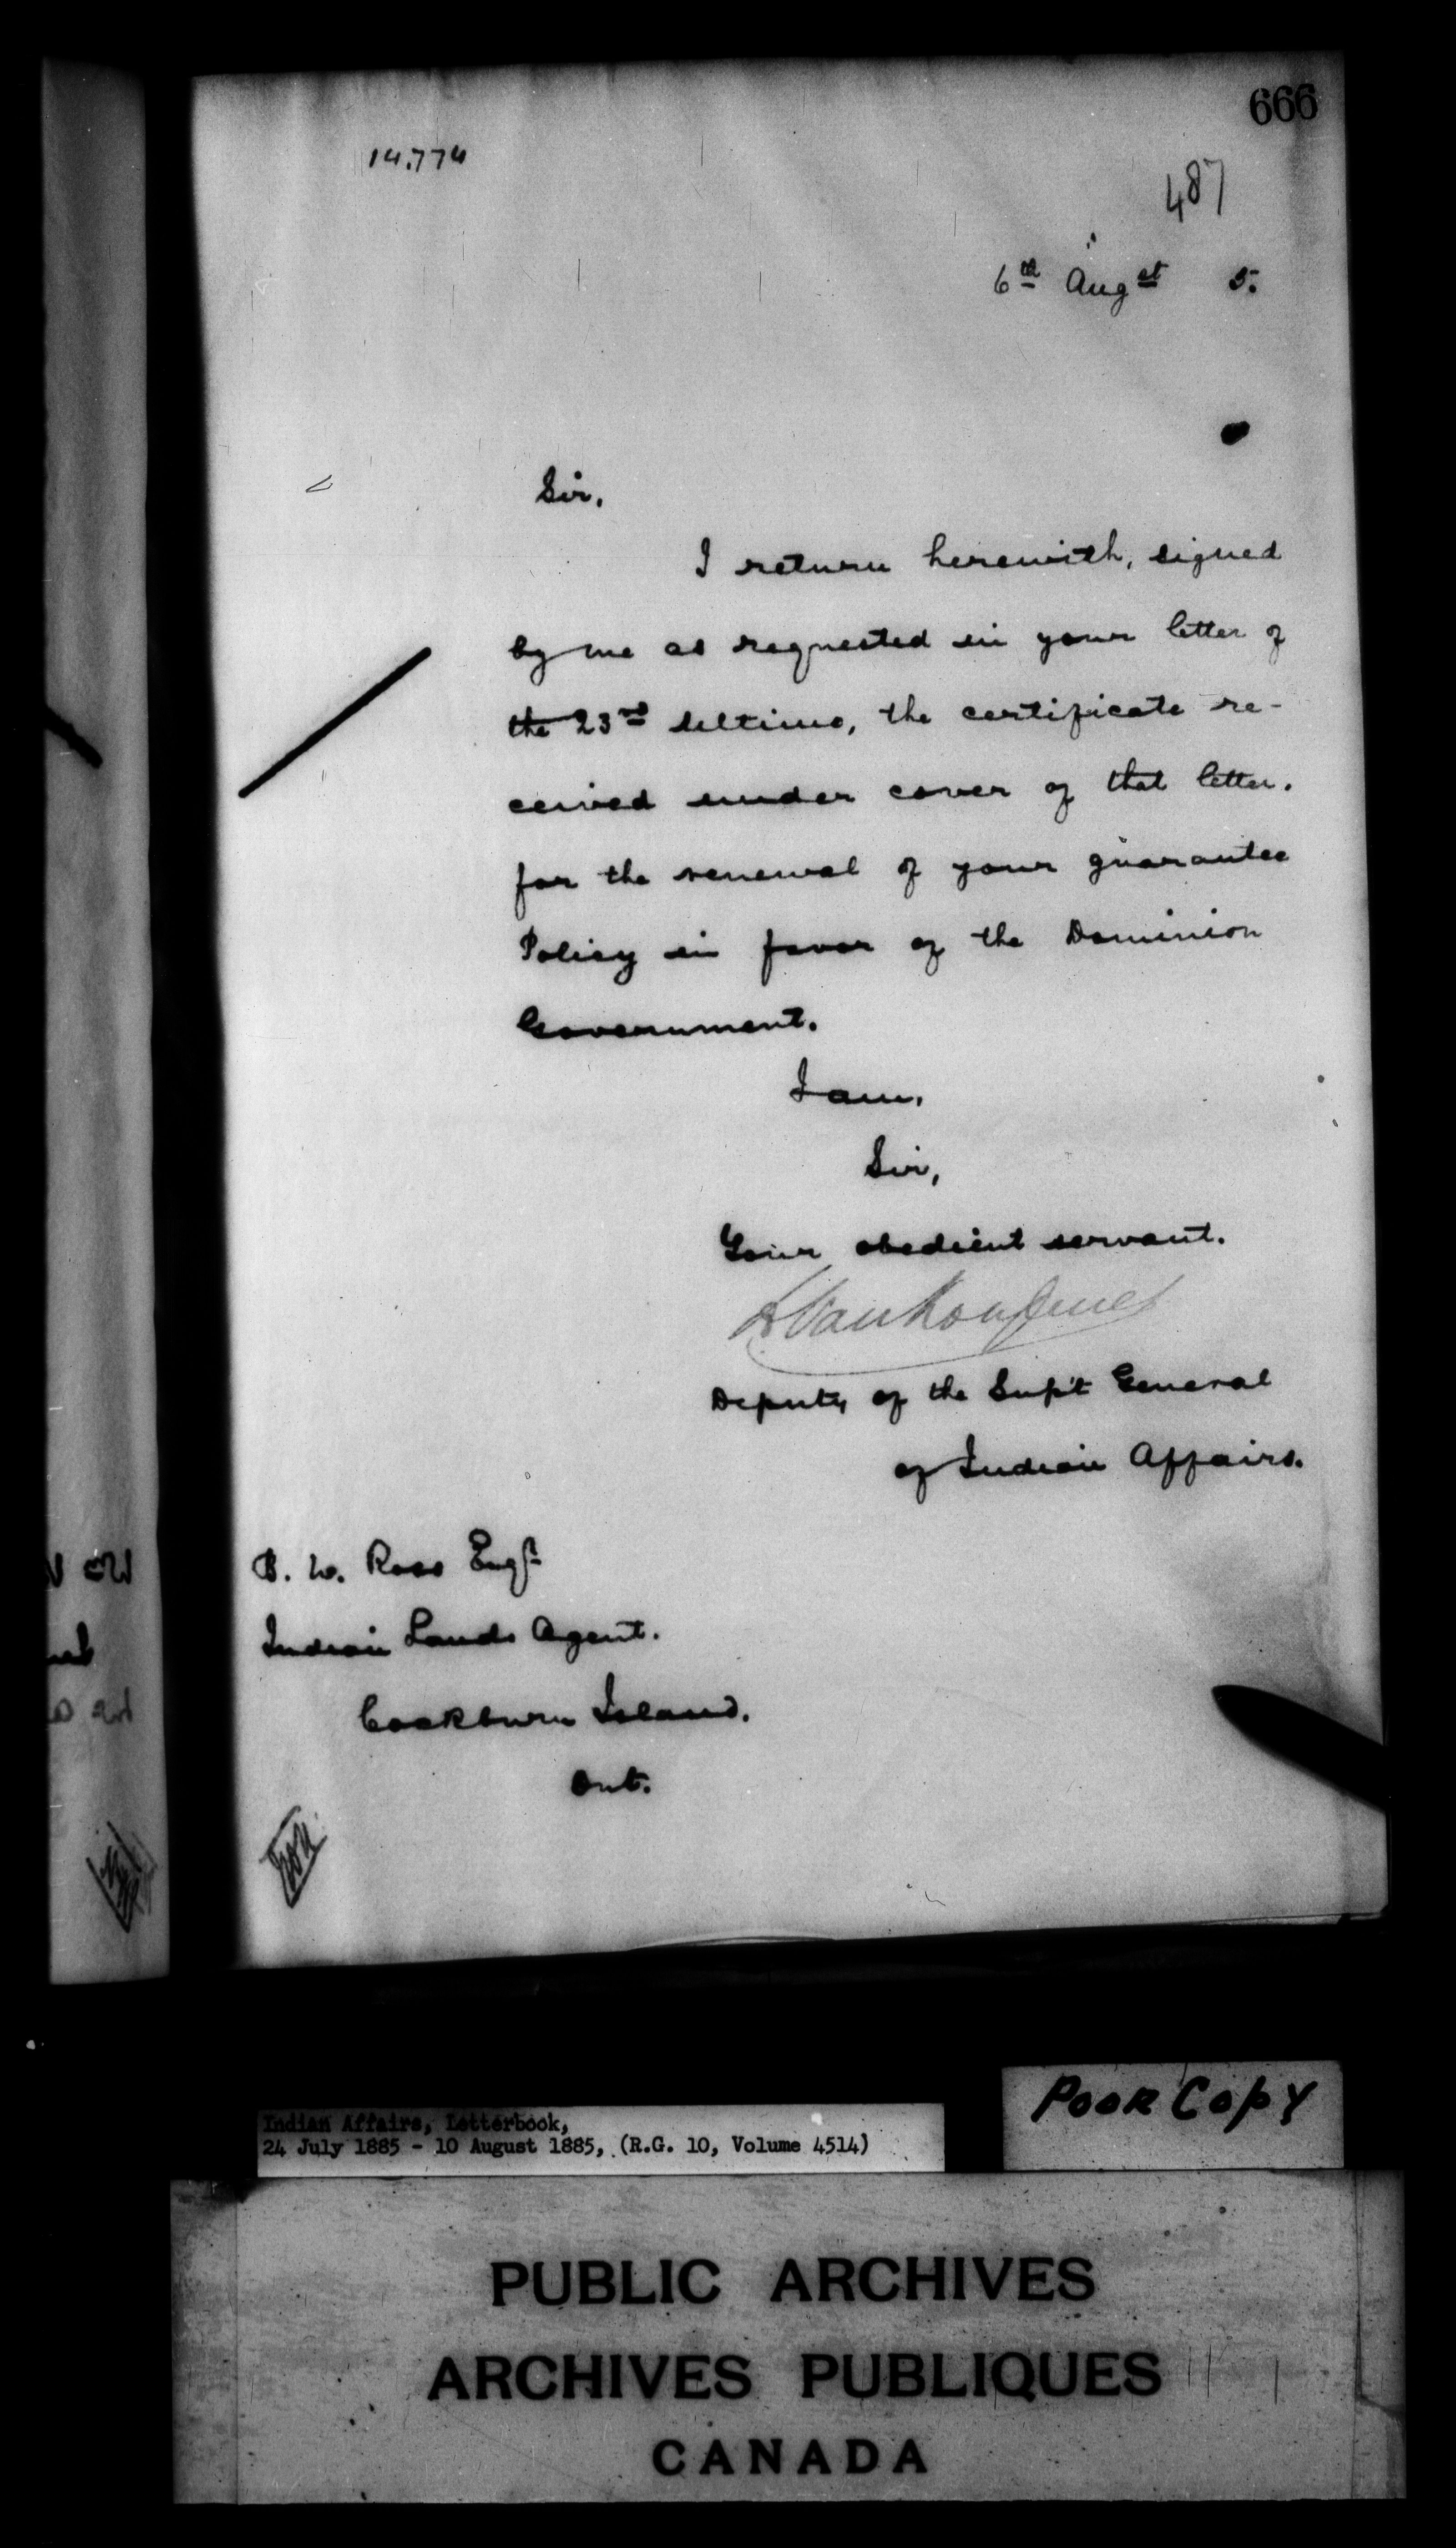 666
14.774
487
6th Augst 5.
Sir,
I return herewith, signed
by me as requested in your letter of
the 23rd ultimo, the certificate re-
ceived under cover of that letter.
for the renewal of your guarantee
Policy in favor of the Dominion
Government.
I am,
Sir,
Your obedient servant.
L Vankoughnet
Deputy of the Supt General
of Indian Affairs.
B. W. Ross Esqr
Indian Lands Agent.
Cockburn Island.
Ont.
Poor Copy
Indian Affairs, Letterbook,
24 July 1885 - 10 August 1885, (R.G. 10, Volume 4514)
PUBLIC ARCHIVES
ARCHIVES PUBLIQUES
CANADA